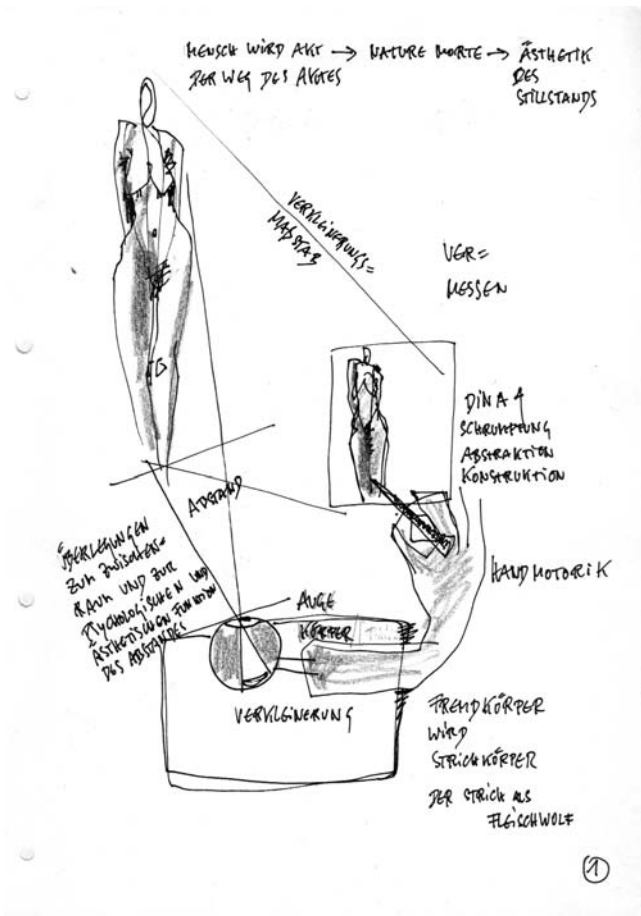 MENSCH WIRD AKT → NATURE MORTE → ÄSTHETIK
DER WEG DES AKTES
DES
STILLSTANDS
VERKLEINERUNGS=
MAßSTAB
VER=
MESSEN
DIN A 4
SCHRUMPFUNG
ABSTRAKTION
KONSTRUKTION
ABSTAND
ÜBERLEGUNGEN
ZUM ZWISCHEN-
RAUM UND ZUR
PSYCHOLOGISCHEN UND
ÄSTHETISCHEN FUNKTION
DES ABSTANDES
HANDMOTORIK
AUGE
KÖRPER
VERKLEINERUNG
FREMDKÖRPER
WIRD
STRICHKÖRPER
DER STRICH ALS
FLEISCHWOLF
1